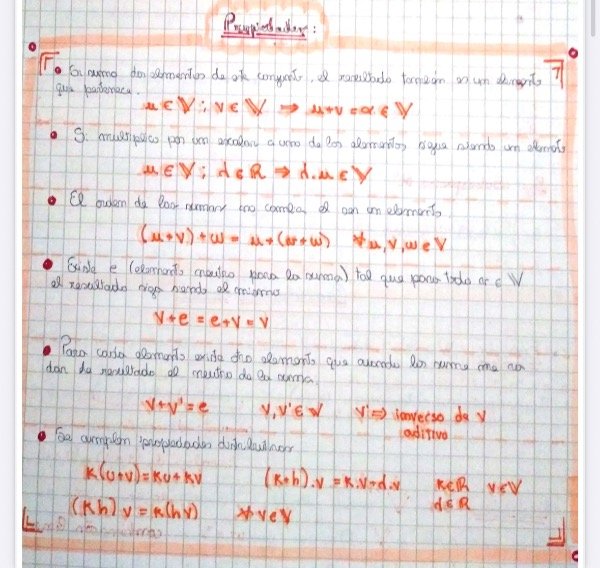 Propiedades:
• Si sumo dos elementos de este conjunto, el resultado también es un elemento
que pertenece.
u ∈ V ; v ∈ V ⇒ u+v = α ∈ V
• Si multiplico por un escalar a uno de los elementos sigue siendo un elemento
u ∈ V ; d ∈ R ⇒ d.u ∈ V
• El orden de las sumas no cambia el con un elemento.
(u+v)+w = u+(v+w) ∀u,v,w ∈ V
• Existe e (elemento neutro para la suma) tal que para todo v ∈ V
el resultado siga siendo el mismo
V+e = e+V = V
• Para cada elemento existe otro elemento que cuando los sume me va
dar de resultado el neutro de la suma.
V+V' = e V,V' ∈ V V' ⇒ inverso de V
aditivo
• Se cumplen propiedades distributivas
K(u+v) = Ku+Kv (K+h).v = K.V+d.v K∈R v∈V
d∈R
(Kh)v = K(hv) ∀v∈V